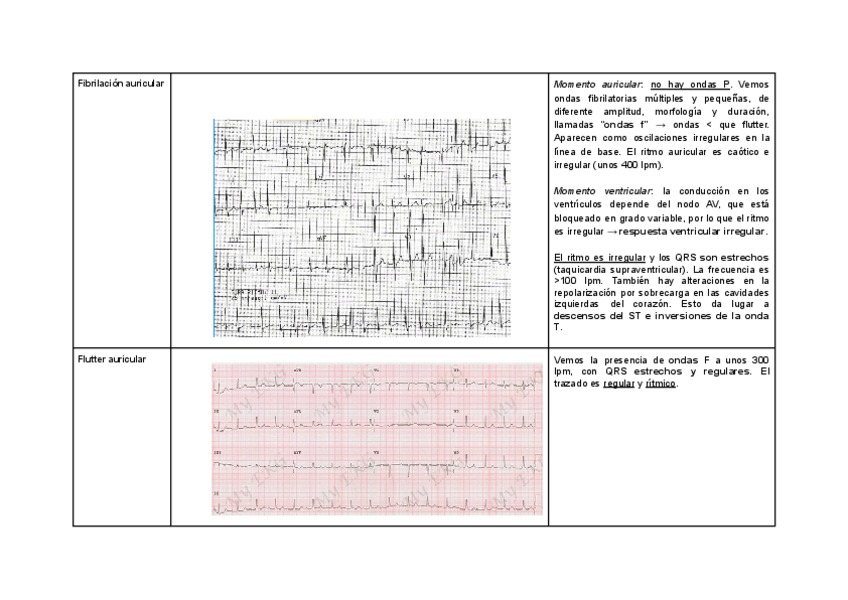 Fibrilación auricular
Momento auricular: no hay ondas P. Vemos
ondas fibrilatorias múltiples y pequeñas, de
diferente amplitud, morfología y duración,
llamadas "ondas f" → ondas < que flutter.
Aparecen como oscilaciones irregulares en la
línea de base. El ritmo auricular es caótico e
irregular (unos 400 lpm).
Momento ventricular: la conducción en los
ventrículos depende del nodo AV, que está
bloqueado en grado variable, por lo que el ritmo
es irregular → respuesta ventricular irregular.
El ritmo es irregular y los QRS son estrechos
(taquicardia supraventricular). La frecuencia es
>100 lpm. También hay alteraciones en la
repolarización por sobrecarga en las cavidades
izquierdas del corazón. Esto da lugar a
descensos del ST e inversiones de la onda
T.
Flutter auricular
My EKG My EKG My EKG My EKG
My EKG My EKG My EKG My EKG
Vemos la presencia de ondas F a unos 300
lpm, con QRS estrechos y regulares. El
trazado es regular y rítmico.